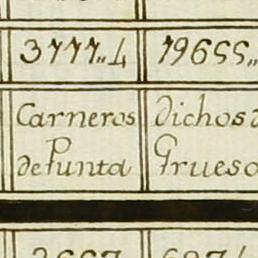 3777,,4 19655,,
Carneros
de Punta
Dichos
Grueso